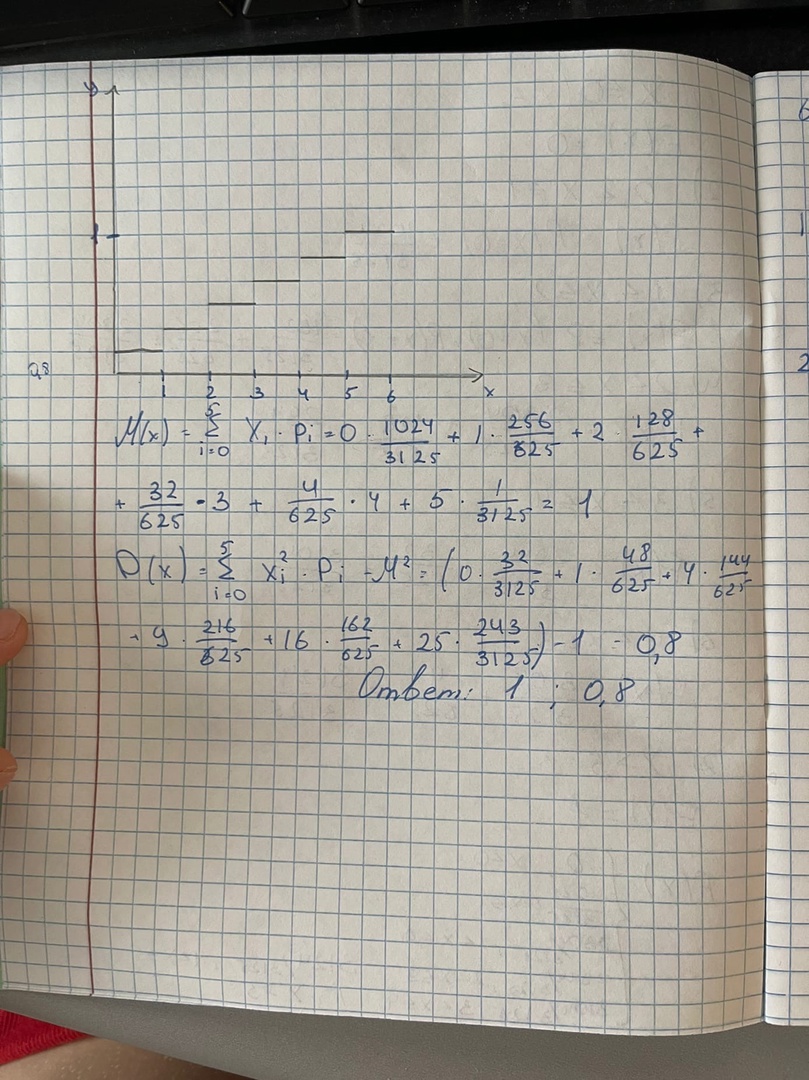 y
1
0,8
1 2 3 4 5 6 x
M(x) = 5 Σ i=0 Xi · Pi = 0 · 1024/3125 + 1 · 256/625 + 2 · 128/625 +
+ 32/625 · 3 + 4/625 · 4 + 5 · 1/3125 = 1
D(x) = 5 Σ i=0 Xi² · Pi - M² = (0 · 32/3125 + 1 · 48/625 + 4 · 144/625
+ 9 · 216/625 + 16 · 162/625 + 25 · 243/3125) - 1 = 0,8
Ответ: 1 ; 0,8
6
1
2